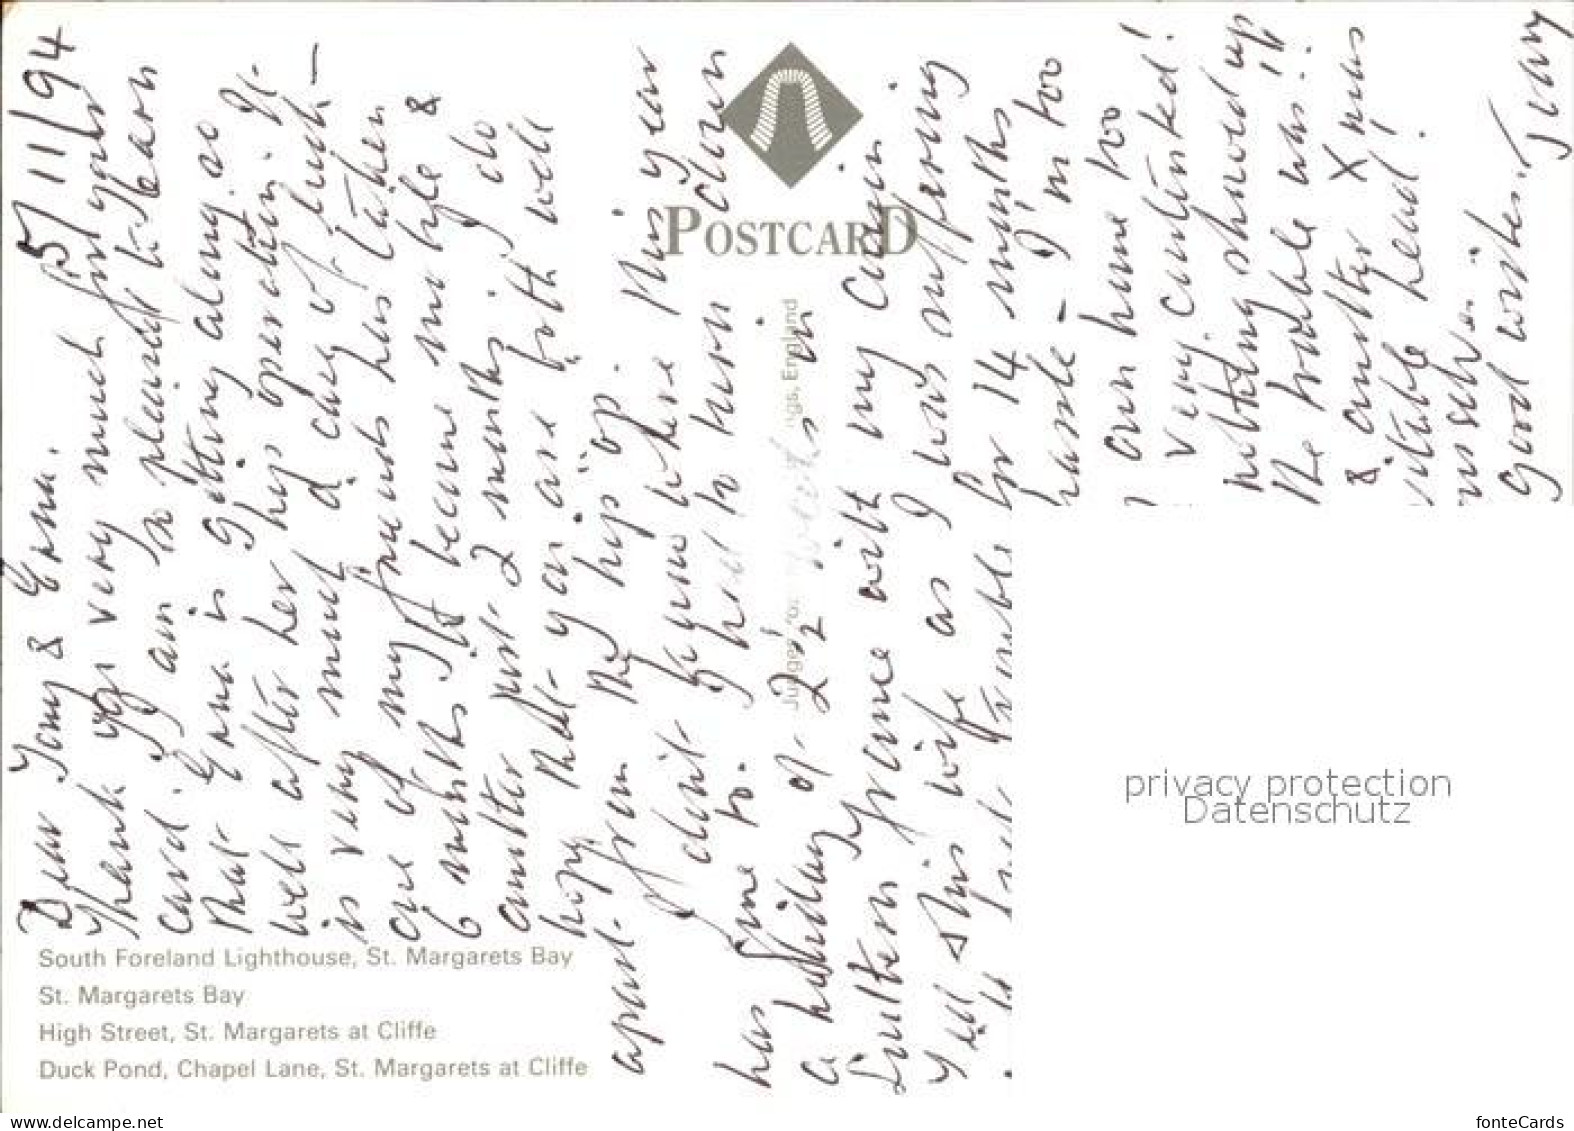 5/11/94
Dear Tony & Erna.
Thank you very much for your
card. I am so pleased to learn
that Erna is getting along so
well after her hip operation. It
is very much a case of luck —
one of my friends has taken
6 months to become mobile &
another just 2 months; I do
hope that you are both well
apart from the hip op. This year
I don't know where
has gone to. I had to turn down
a holiday of 2½ weeks in
Southern France with my cousin
and his wife as I was suffering
with back trouble for 14 months
hassle - I'm too
own home too
very contented!
nothing showed up
the trouble was!!
& another Xmas
head!
us selves.
Good wishes.
Jean
POSTCARD
Judges
ngs, England
South Foreland Lighthouse, St. Margarets Bay
St. Margarets Bay
High Street, St. Margarets at Cliffe
Duck Pond, Chapel Lane, St. Margarets at Cliffe
privacy protection
Datenschutz
www.delcampe.net
fonteCards